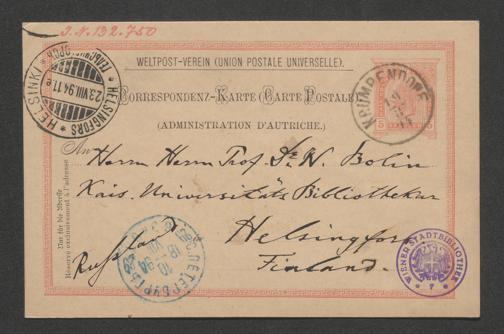 I.N. 192.750
WELTPOST-VEREIN (UNION POSTALE UNIVERSELLE).
CORRESPONDENZ-KARTE (CARTE POSTALE)
(ADMINISTRATION D'AUTRICHE.)
KRUMPENDORF
5
HELSINKI
HELSINGFORS
23.VIII.94.11 e
An
Nur für die Adresse
Réservé exclusivement à l'adresse
Herrn Herrn Prof. Dr. W. Bolin
Kais. Universitäts Bibliothekar
Helsingfors
Russland
Finland.
С.ПЕТЕРБУРГЪ
10
WIENER STADTBIBLIOTHEK